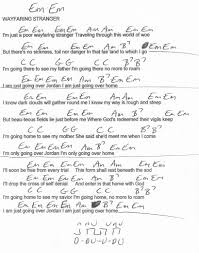 Em Em
WAYFARING STRANGER
Em Em Em Em Am Am Em Em
I'm just a poor wayfaring stranger Traveling through this world of woe
Em Em Em Em Am B7 Em Em
But there's no sickness, toil nor danger in that fair land to which I go
C C G G C C B7 B7
I'm going there to see my father I'm going there no more to roam
Em Em Em Em Am B7 Em Em
I am just going over Jordan I am just going over home
Em Em Em Em Am Am Em Em
I know dark clouds will gather round me I know my way is rough and steep
Em Em Em Em Am B7 Em Em
But beauteous fields lie just before me Where God's redeemed their vigils keep
C C G G C C B7 B7
I'm going home to see my mother She said she'd meet me when I come
Em Em Em Em Am B7 Em Em
I'm only going over Jordan I'm only going over home
Em Em Em Em Am Am Em Em
I'll soon be free from every trial This form shall rest beneath the sod
Em Em Em Em Am B7 Em Em
I'll drop the cross of self denial And enter in that home with God
C C G G C C B7 B7
I'm going home to see my savior I'm going home, no more to roam
Em Em Em Em Am B7 Em Em
I am just going over Jordan I am just going over home
D-DU-U-DU